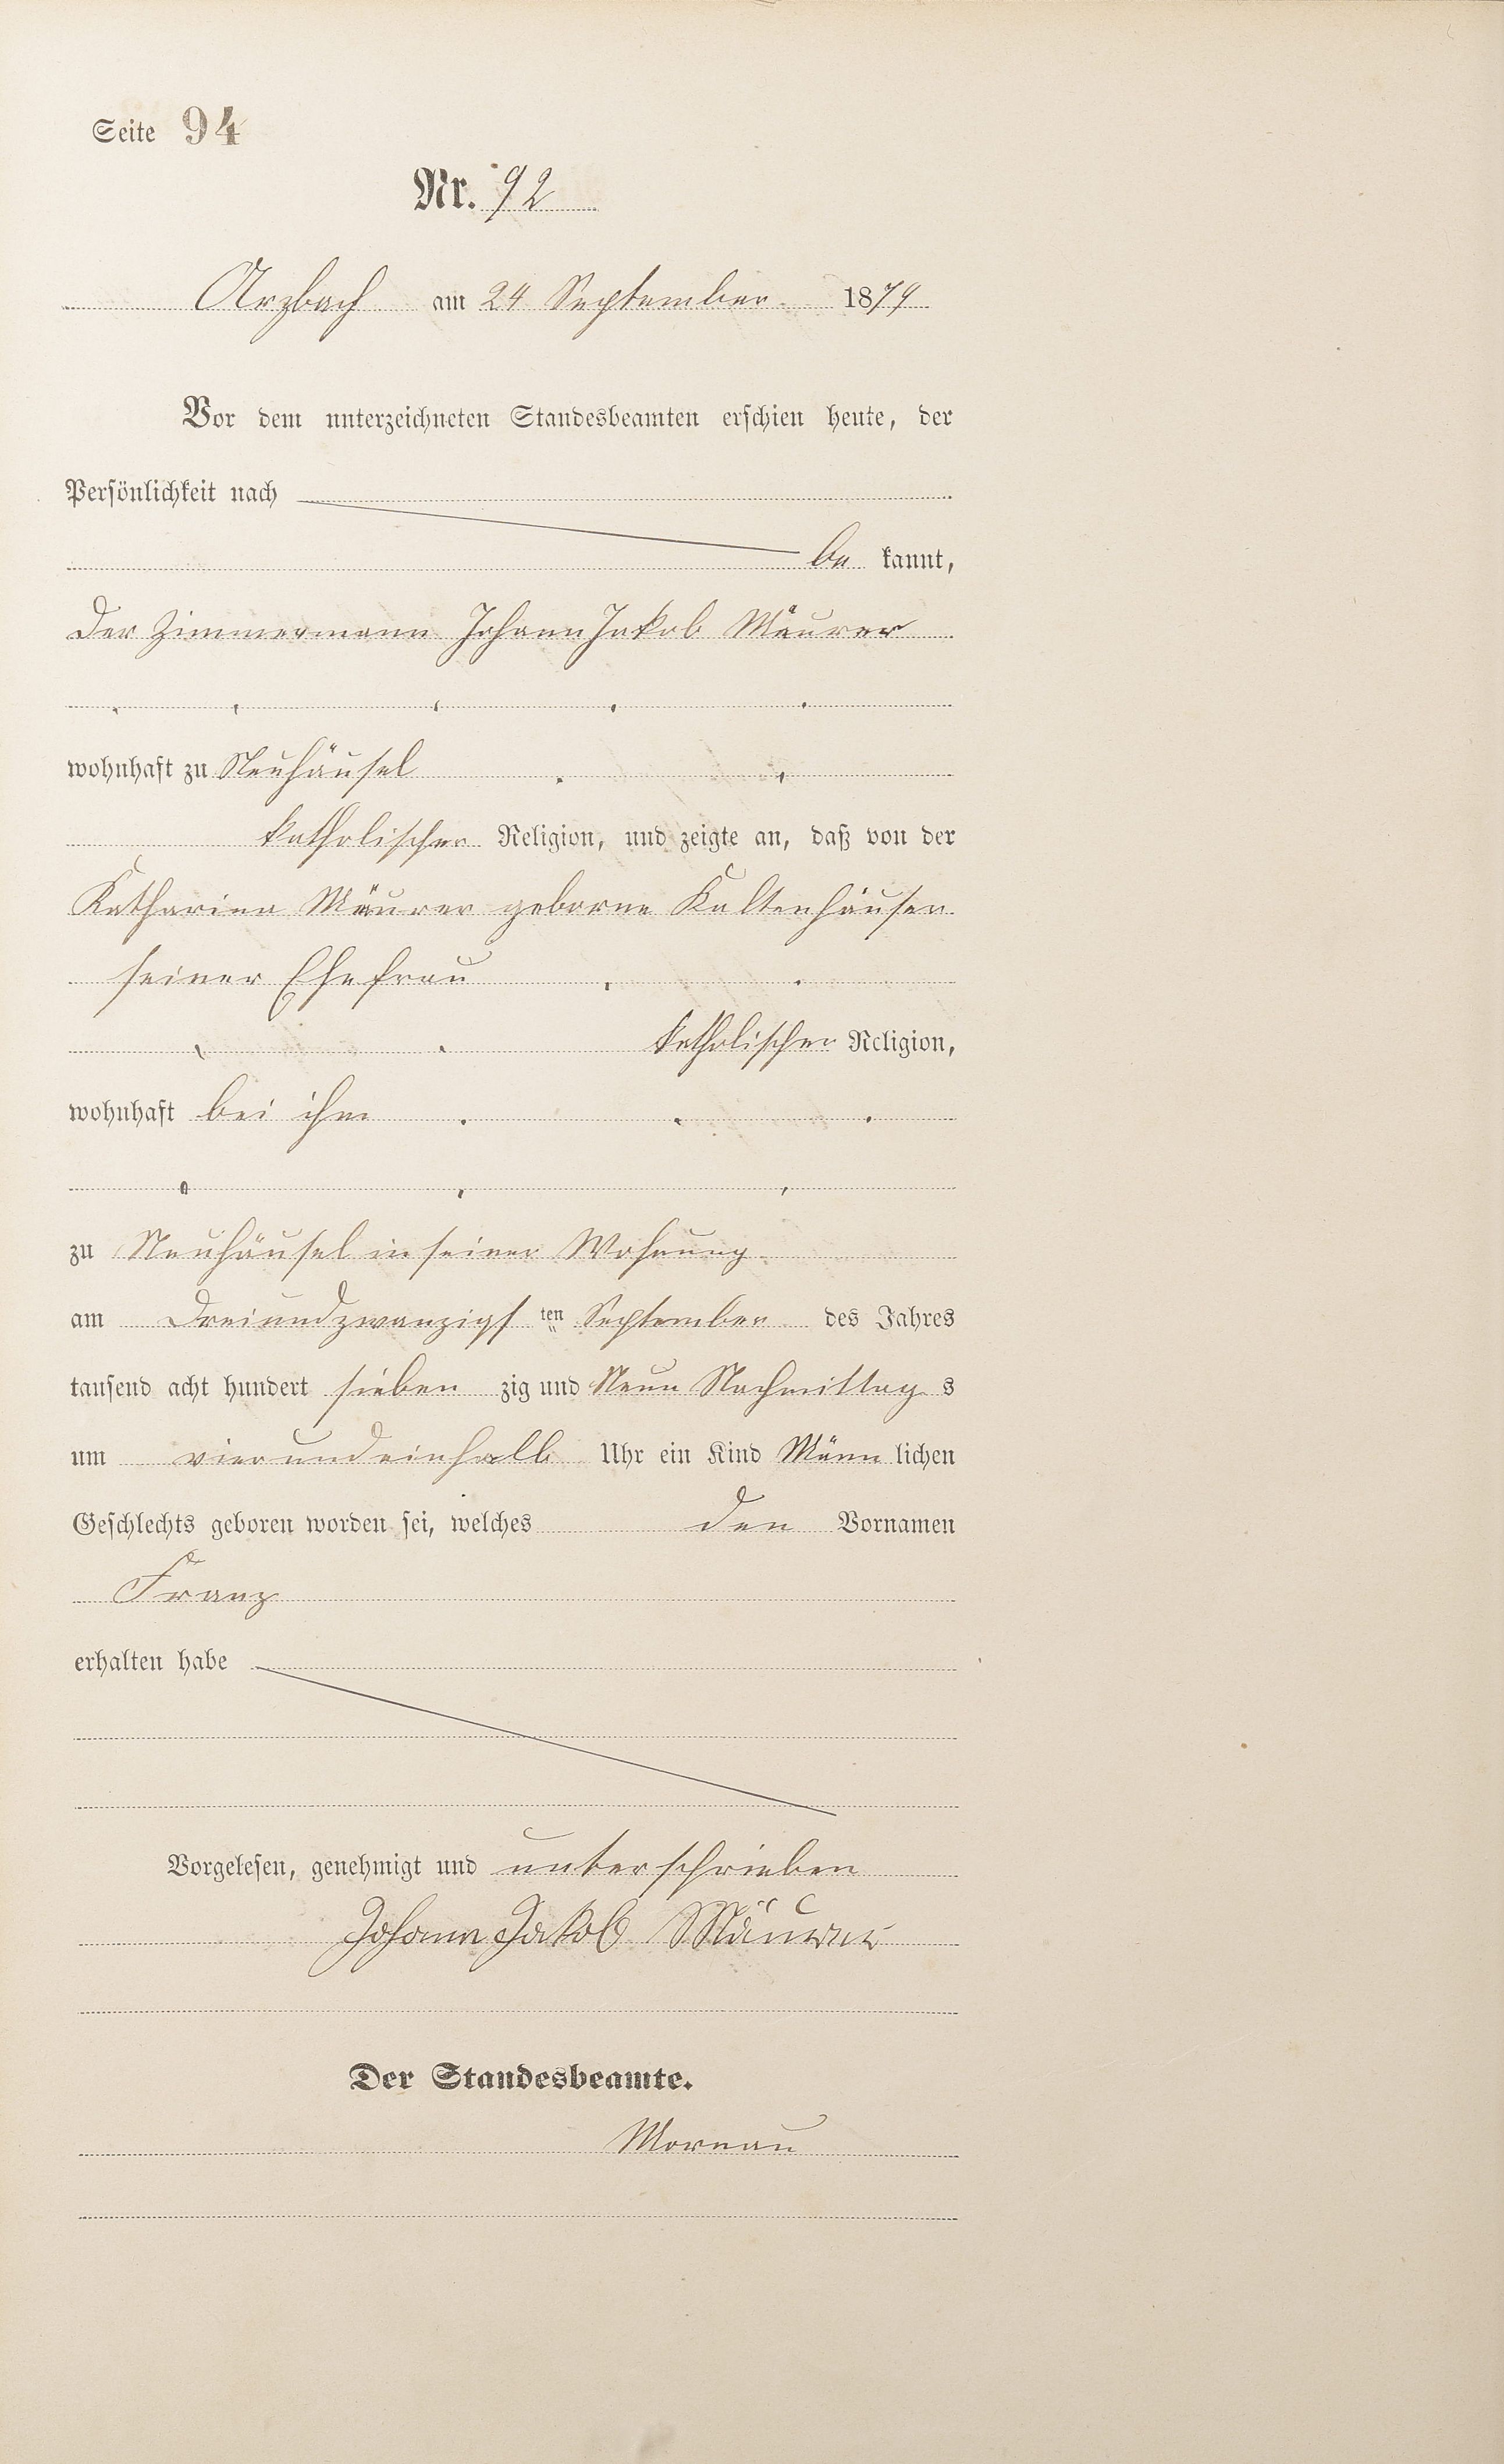 Seite 94
Nr. 92
Arzbach am 24 September 1879
Vor dem unterzeichneten Standesbeamten erschien heute, der
Persönlichkeit nach
be kannt,
der Zimmermann Johann Jakob Mäurer
wohnhaft zu Neuhäusel
katholischer Religion, und zeigte an, daß von der
Katharina Mäurer geborne Kaltenhäuser
seiner Ehefrau
katholischer Religion,
wohnhaft bei ihm
zu Neuhäusel in seiner Wohnung
am Dreiundzwanzigs ten September des Jahres
tausend acht hundert sieben zig und Neun Nachmittag s
um vierundeinhalb Uhr ein Kind Männ lichen
Geschlechts geboren worden sei, welches den Vornamen
Franz
erhalten habe
Vorgelesen, genehmigt und unterschrieben
Johann Jakob Mäurer
Der Standesbeamte.
Mornau